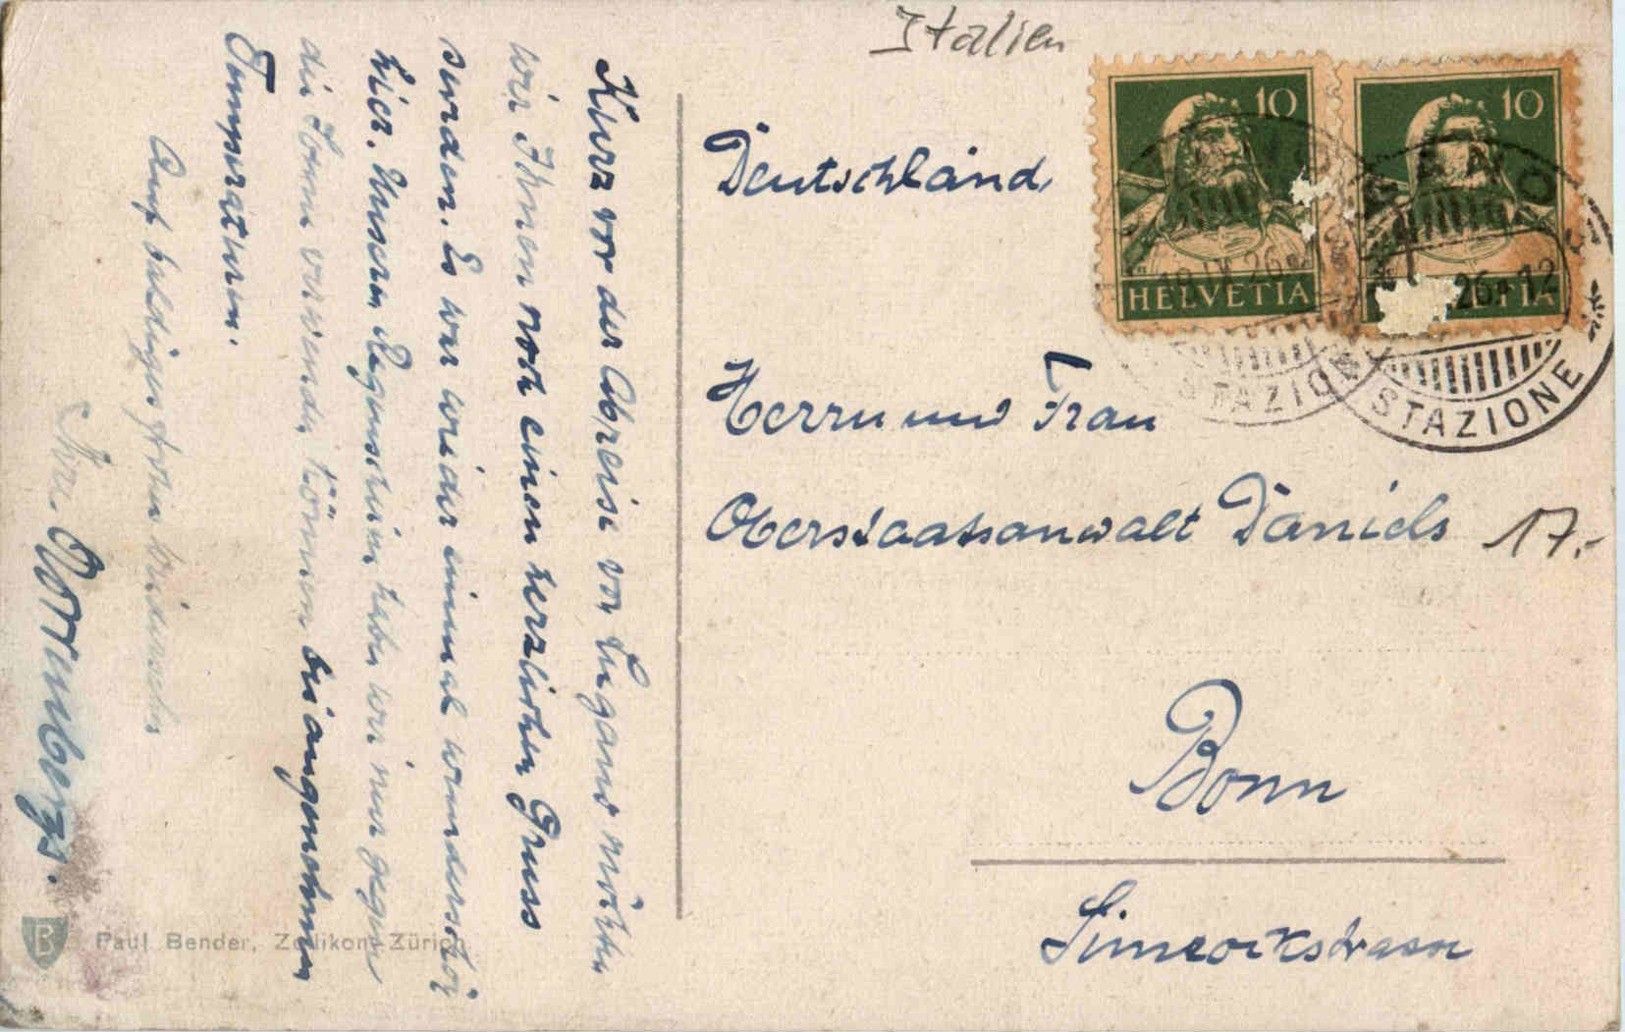 Italien
10
10
HELVETIA
HELVETIA
18.IX.26
26-12
STAZIONE
STAZIONE
Deutschland,
Herrn und Frau
Oberstaatsanwalt Daniels
17.-
Bonn
Simrockstrasse
Kurz vor der Abreise von Lugano möchten
wir Ihnen noch einen herzlichen Gruss
senden. Es war wieder einmal wunderschön
hier. Unsern Regenschirm haben wir nur gegen
die Sonne verwenden können bei angenehmen
Temperaturen.
Auf baldiges frohes Wiedersehen
Ihre
Paul Bender, Zollikon-Zürich
B